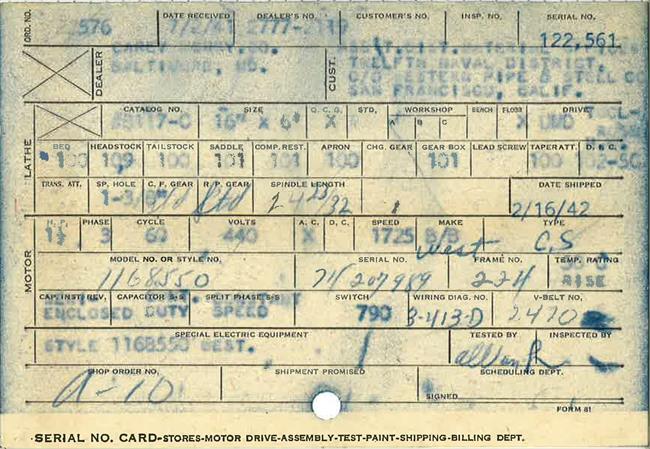 ORD. NO. DATE RECEIVED DEALER'S NO. CUSTOMER'S NO. INSP. NO. SERIAL NO.
576 122,561
DEALER CUST.
BALTIMORE, MD. TWELFTH NAVAL DISTRICT,
C/O WESTERN PIPE & STEEL CO
SAN FRANCISCO, CALIF.
CATALOG NO. SIZE Q.C.G. STD. WORKSHOP BENCH FLOOR DRIVE
A B C
8117-C 16" X 6' X X UMD
LATHE
BED HEADSTOCK TAILSTOCK SADDLE COMP. REST. APRON CHG. GEAR GEAR BOX LEAD SCREW TAPER ATT. D. B. C.
100 109 100 101 101 100 101 100
TRANS. ATT. SP. HOLE C. F. GEAR R. P. GEAR SPINDLE LENGTH DATE SHIPPED
2/16/42
MOTOR
H. P. PHASE CYCLE VOLTS A. C. D. C. SPEED MAKE TYPE
3 60 440 X 1725 West C.S
MODEL NO. OR STYLE NO. SERIAL NO. FRAME NO. TEMP. RATING
1168550 207989 224 RISE
CAP. INST. REV. CAPACITOR S-S SPLIT PHASE S-S SWITCH WIRING DIAG. NO. V-BELT NO.
ENCLOSED DUTY SPEED 790 3-413-D 2420
SPECIAL ELECTRIC EQUIPMENT TESTED BY INSPECTED BY
STYLE 1168550 WEST.
SHOP ORDER NO. SHIPMENT PROMISED SCHEDULING DEPT.
A-10
SIGNED
FORM 81
SERIAL NO. CARD-STORES-MOTOR DRIVE-ASSEMBLY-TEST-PAINT-SHIPPING-BILLING DEPT.